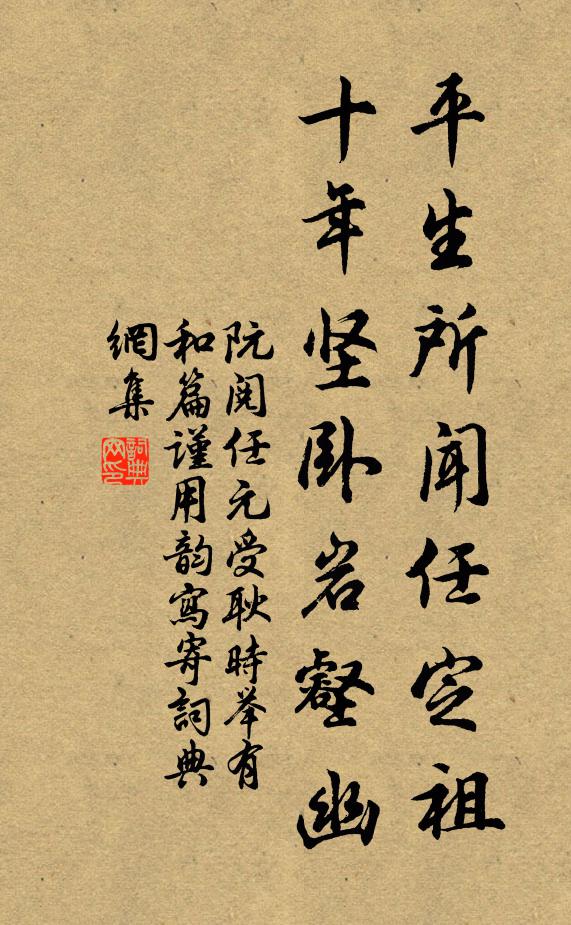 平生所闻任定祖
十年坚卧岩壑幽
阮阅任元受耿時举有
和篇谨用韵寫寄詞典
網集
詞典
网印